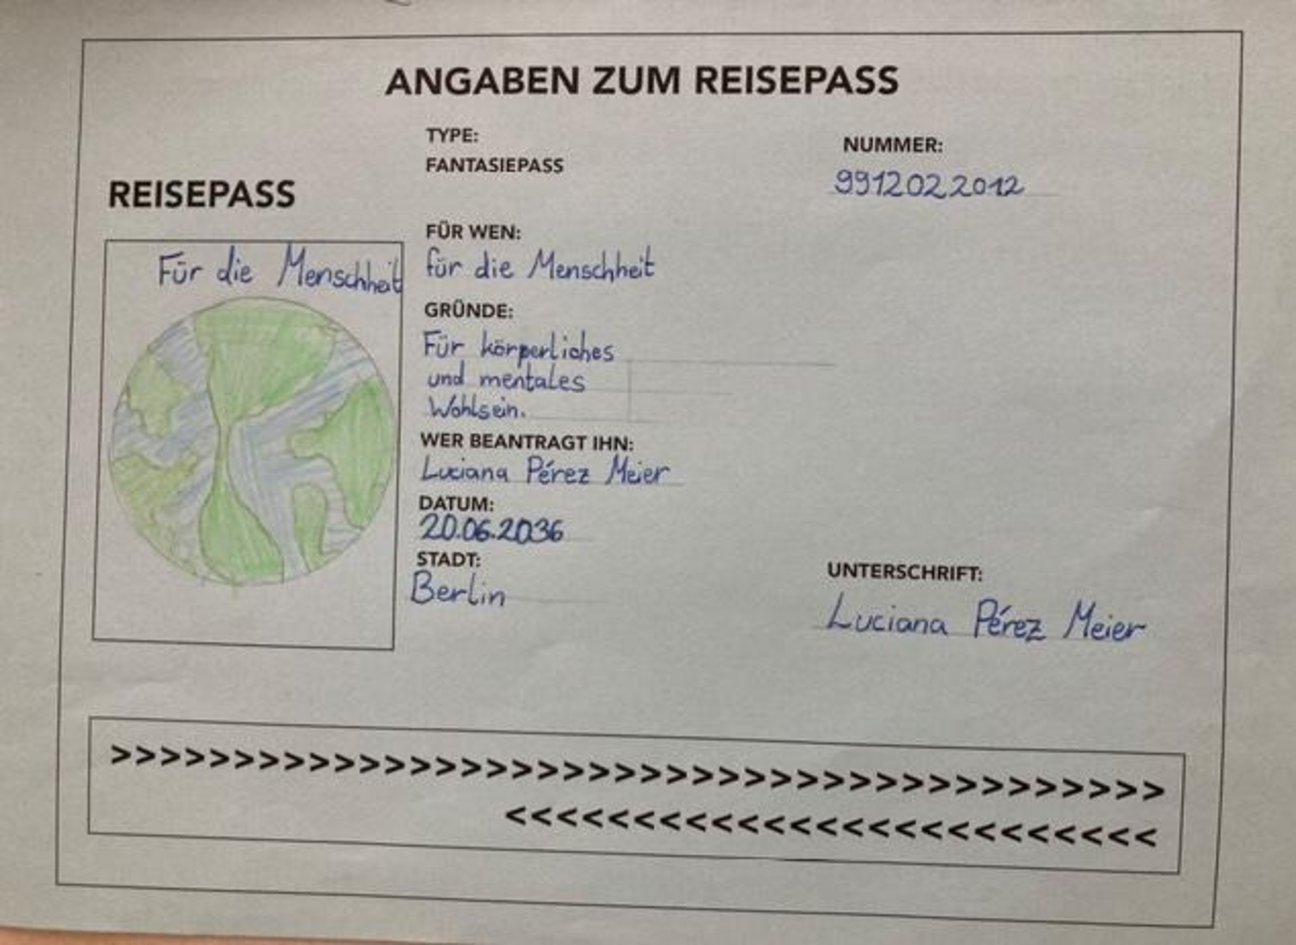 ANGABEN ZUM REISEPASS
TYPE:
FANTASIEPASS
NUMMER:
9912022012
REISEPASS
Für die Menschheit
FÜR WEN:
für die Menschheit
GRÜNDE:
Für körperliches
und mentales
Wohlsein.
WER BEANTRAGT IHN:
Luciana Pérez Meier
DATUM:
20.06.2036
STADT:
Berlin
UNTERSCHRIFT:
Luciana Pérez Meier
>>>>>>>>>>>>>>>>>>>>>>>>>>>>>>>>>>>>>>>>>>
<<<<<<<<<<<<<<<<<<<<<<<<<